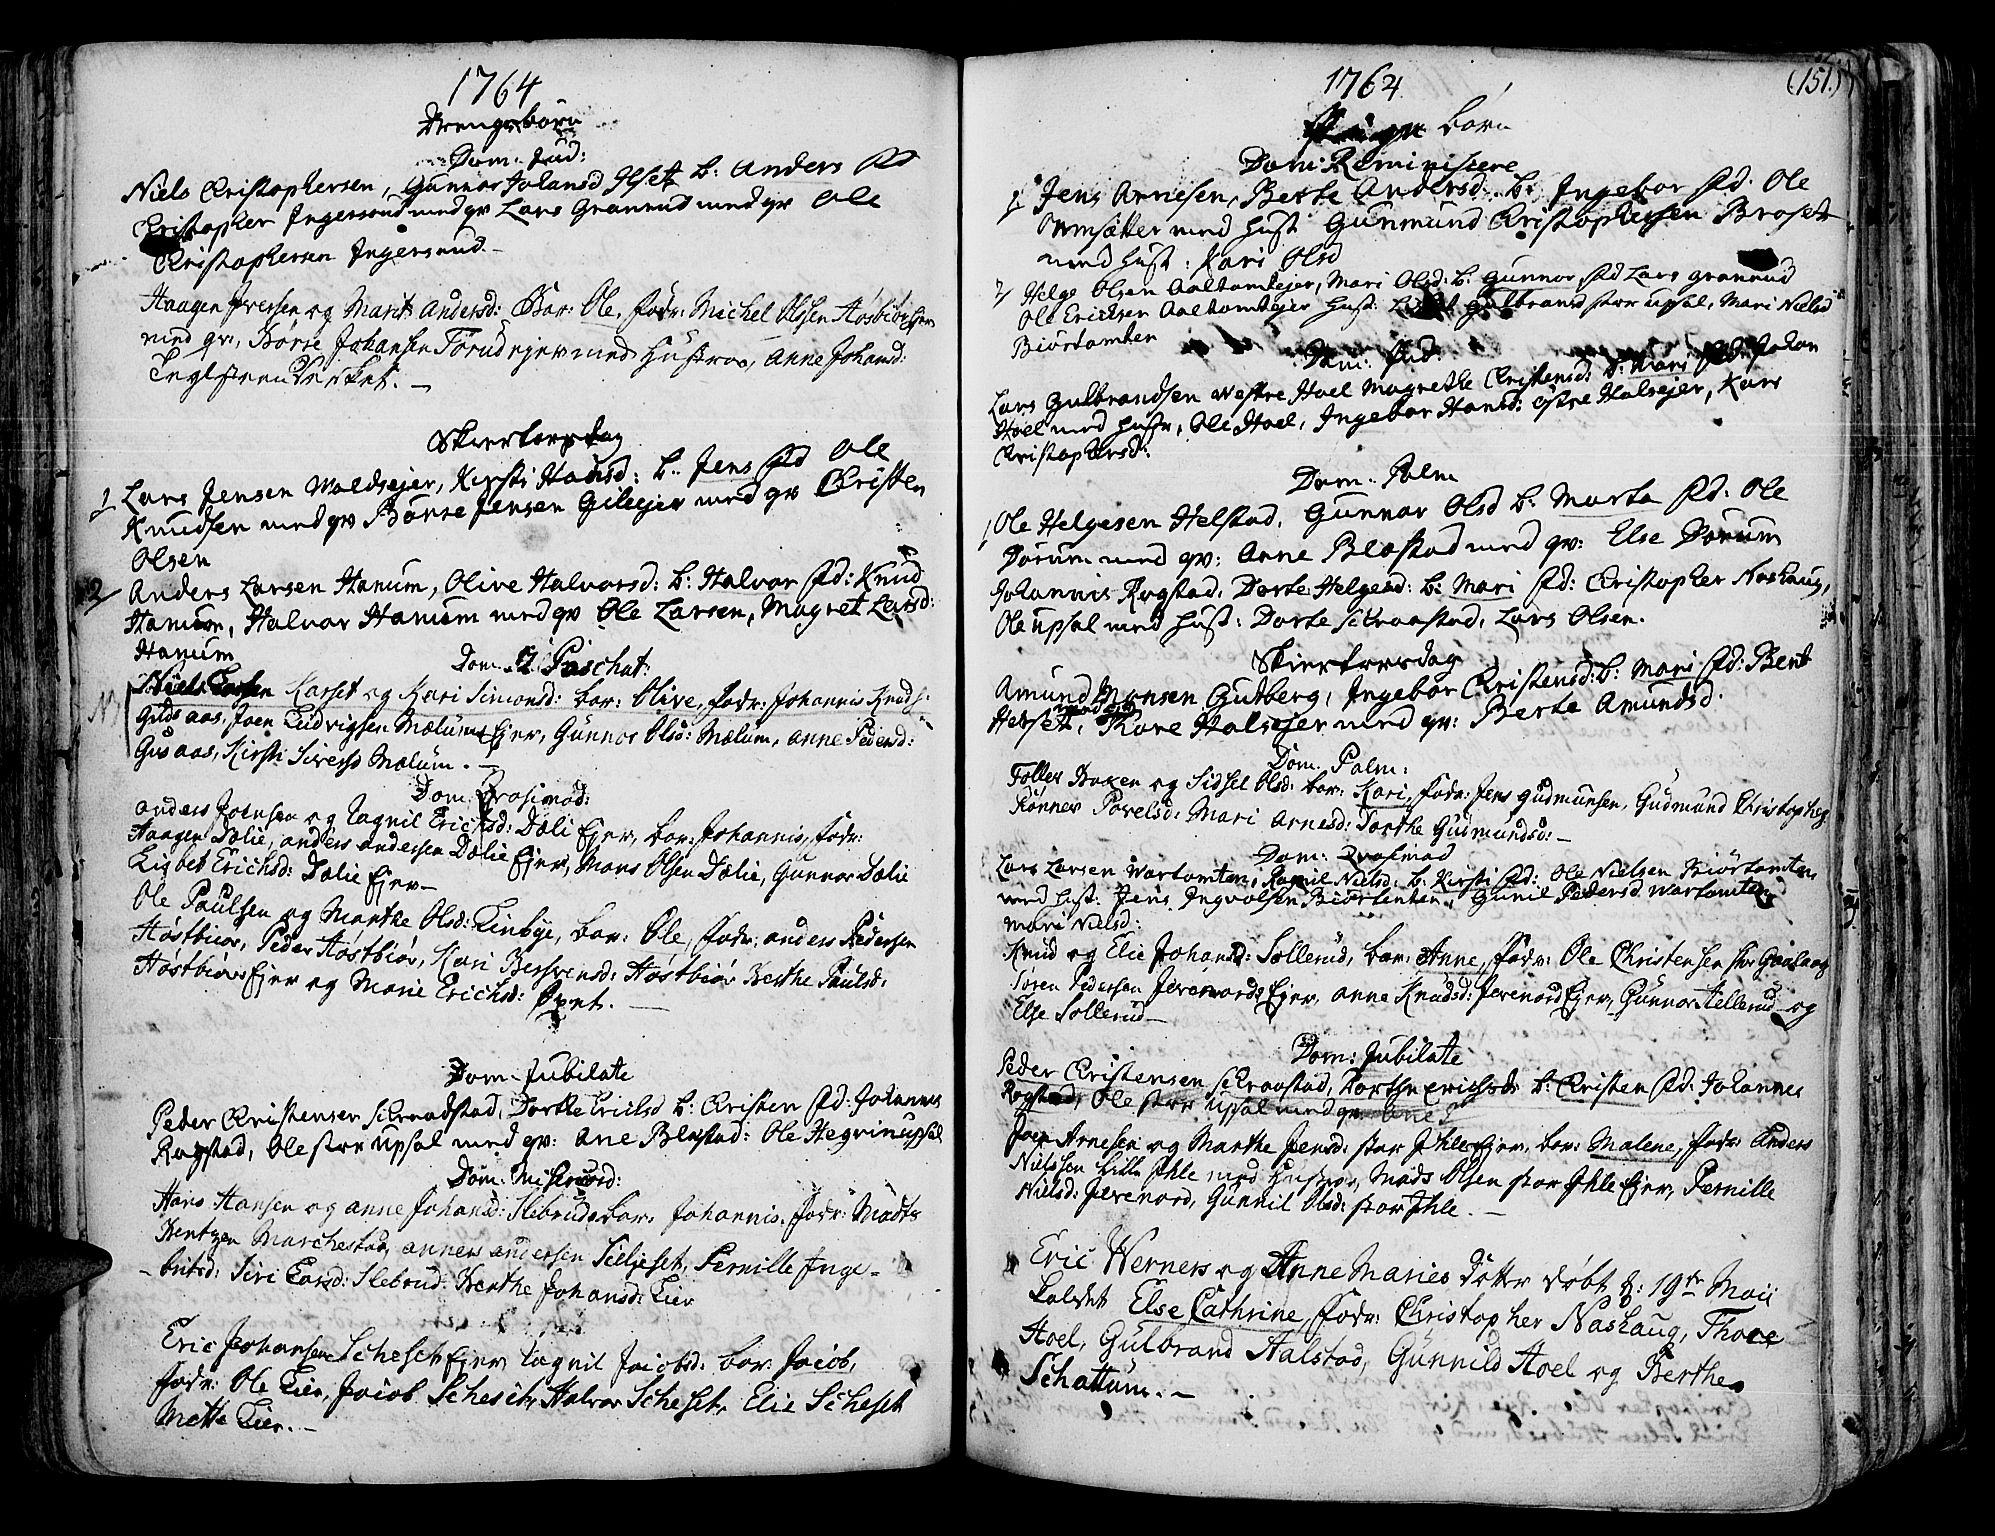 1764
Drengebörn
Dom: Jud:
Niels Cristophersen, Gunnor Johansd b: Anders fd
Cristopher Ingersrud med qv Lars Granrud med qv Ole
Cristophersen Ingersrud.
Haagen Iversen og Marit Andersd: Bar: Ole, fodr: Michel Olsen
med qv, Börre Johansen Torud ejer med Hustroe, Anne Johansd:
Skiertorsdag
1 Lars Jensen Woldsejer, Kirsti Hansd: b: Jens fd Ole
Knudsen med qv Börre Jensen med qv Christen
Olsen
2 Anders Larsen Hanum, Olive Halvorsd: b: Halvor fd: Knud
Hanum, Halvor Hanum med qv Ole Larsen, Magret Larsd:
Hanum
Dom. 2 Paschat
Karset og Kari Simonsd: bar: Olive, fodr: Johannis
Joen Ludvigsen Mælums Ejer, Gunnor Olsd: Mælum, Anne Pedersd:
Kirsti Siversd Mælum.
Dom Qvasimod:
Anders Joensen og Ragnil Erichsd: Dæli Ejer, bar: Johannis, fodr:
Haagen Dælie, Anders Andersen Dælie Ejer, Mons Olsen Dælie, Gunnor Dælie
Lisbet Erichsd: Dælie Ejer
Ole Paulsen og Marthe Olsd: Linbye, bar: Ole, fodr: Anders Pedersen
Höstbiör, Peder Höstbiör, Kari Höstbiör Berthe Paulsd:
Höstbiörs Ejer og Marie Erichsd:
Dom. Jubilate
Peder Cristensen Skraadstad, Dorthe Ericksd b: Cristen fd: Johannes
Rogstad, Ole stor Upsal med qv: Ane Blæstad: Ole
Dom: Miserecord:
Hans Hansen og Anne Johansd: Slebruds bar: Johannis, fodr: Madts
Bentzen Marchestad, Anners Andersen Sæljeset, Pernille Inge-
britsd: Siri Larsd: Slebrud Berthe Johansd: Lier
Eric Johansen Schesets Ejer Ragnil Jacobsd: bar: Jacob,
fodr: Ole Lier, Jacob Scheset, Halvor Scheset, Elie Scheset
Mette Lier.
1764
(151.)
börn
Dom: Reminiscere
1 Jens Arnesen, Berte Andersd: b: Ingebor fd: Ole
med Hust Gunmund Cristophersen
med Hust: Kari Olsd
2 Helge Olsen Aaltomtejer, Mari Olsd: b: Gunnor fd Lars Granrud
Ole Ericksen Aaltomtejer Hust: Gulbransd stor Upsal, Mari Nielsd
Biörtomten
Dom: Jud:
Lars Gulbrandsen Westre Hoel Magrethe Cristensd: b: Mari fd: Johan
Hoel med Hustr, Ole Hoel, Ingebor Hansd: östre Halsejer, Kari
Cristophersd:
Dom: Palm
1 Ole Helgesen Helstad, Gunnor Olsd b: Marta fd: Ole
Dorum med qv: Anne Blæstad med qv: Else Dorum
Johannis Rogstad, Dorte Helgesd: b: Mari fd: Cristopher Naskaug,
Ole Upsal med Hust: Dorte Skraastad, Lars Olsen.
Skiertorsdag
Amund Monsen Gutberg, Ingebor Cristensd: b: Mari fd: Bent
med qv
Helset, Thore Halsejer med qv: Berte Amundsd:
Dom. Palm:
og Sidsel Olsd: bar: Kari, fodr: Jens Gudmunsen, Gudmund
Povelsd: Mari Arnesd: Dorthe Gudmundsd:
Dom: Qvasimod
Lars Larsen Wartomten, Ragnil Nielsd: b: Kirsti fd: Ole Nielsen Biörtomten
med Hust: Jens Ingvolsen Biörtomten, Gunil Pedersd Wartomten
Mari Nielsd:
Knud og Elie Johansd: Sollerud, bar: Anne, fodr: Ole Christensen
Sören Pedersen Ejer, Anne Knudsd: Ejer, Gunnor og
Else Sollerud
Dom: Jubilate
Peder Cristensen Skraastad, Dorthe Erichsd: b: Cristen fd: Johannes
Rogstad, Ole stor Upsal med qv
Joen Arnesen og Marthe Jensd: stor Ihle Ejer, bar: Malene, fodr: Anders
Nielsen Lille Ihle med Hustroe, Mads Olsen stor Ihle Ejer, Pernille
Nielsd: Gunnil Olsd: stor Ihle.
Eric Werners og Anne Maries Dotter döbt d: 19de Maii
kaldet Else Cathrine, fodr: Christopher Naskaug, Thore
Hoel, Gulbrand Halstad, Gunnild Hoel og Berthe
Schattum.